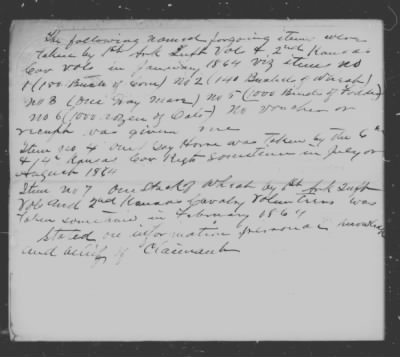 The following named forgoing items were
taken by 1st Ark Inft Vols & 2nd Kansas
Cav Vols in January 1864 viz items no
1 (100 Bush of Corn) No 2 (140 Bushels of Wheat)
No 3 (One Bay Mare) No 5 (1000 Binds of Fodder)
no 6 (1000 dozen of Oats) No voucher or
receipt was given me
Item no 4 One Bay Horse was taken by the 6th
& 14th Kansas Cav Regts sometime in July or
August 1864
Item no 7 One stack of Wheat by 1st Ark Inft
Vols and 2nd Kansas Cavalry Volunteers was
taken sometime in February 1864
Stated on information personal knowledge
and belief of Claimant